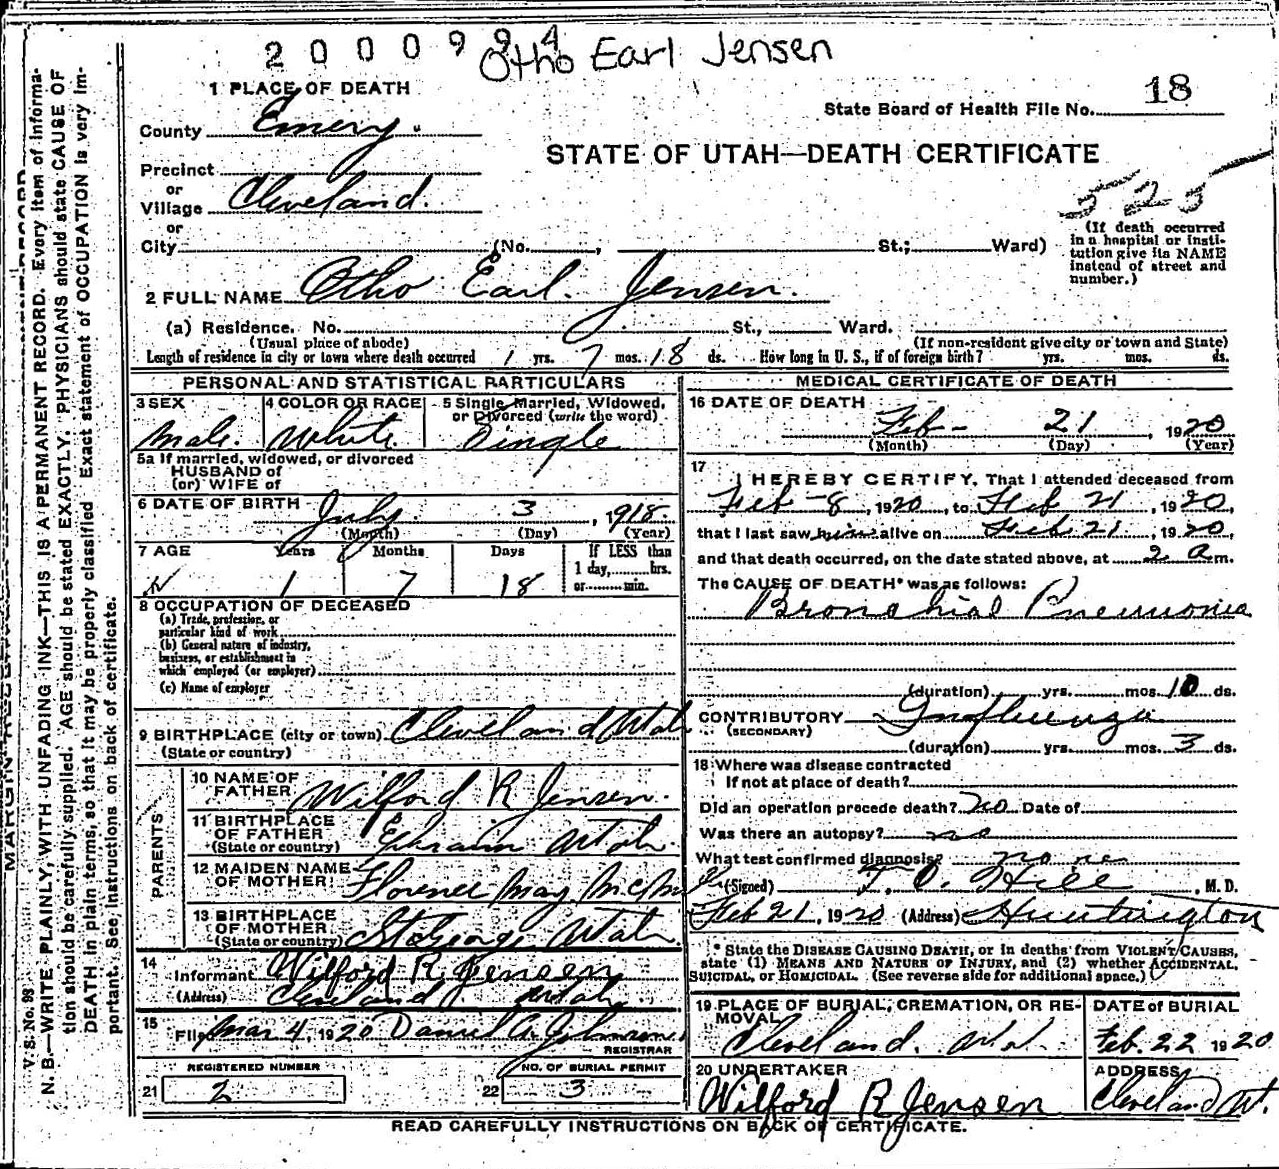 2000994
Otho Earl Jensen
1 PLACE OF DEATH
State Board of Health File No. 18
County Emery.
STATE OF UTAH—DEATH CERTIFICATE
Precinct
or
Village Cleveland.
525
or
City (No. , St.; Ward)
(If death occurred in a hospital or insti-
tution give its NAME
instead of street and
number.)
2 FULL NAME Otho Earl. Jensen.
(a) Residence. No. St., Ward.
(Usual place of abode) (If non-resident give city or town and State)
Length of residence in city or town where death occurred 1 yrs. 7 mos. 18 ds. How long in U. S., if of foreign birth? yrs. mos. ds.
PERSONAL AND STATISTICAL PARTICULARS
3 SEX Male.
4 COLOR OR RACE White.
5 Single, Married, Widowed,
or Divorced (write the word)
Single
5a If married, widowed, or divorced
HUSBAND of
(or) WIFE of
6 DATE OF BIRTH July. 3, 1918.
(Month) (Day) (Year)
7 AGE Years Months Days If LESS than
1 day, hrs.
or min.
1 7 18
8 OCCUPATION OF DECEASED
(a) Trade, profession, or
particular kind of work
(b) General nature of industry,
business, or establishment in
which employed (or employer)
(c) Name of employer
9 BIRTHPLACE (city or town) Cleveland Utah
(State or country)
PARENTS
10 NAME OF
FATHER Wilford R Jensen.
11 BIRTHPLACE
OF FATHER Ephraim Utah.
(State or country)
12 MAIDEN NAME
OF MOTHER Florence May
13 BIRTHPLACE
OF MOTHER
(State or country) St George Utah.
14 Informant Wilford R Jensen
(Address) Cleveland Utah
15 Filed Mar 4, 1920 Daniel A. Johnson
REGISTRAR
REGISTERED NUMBER NO. OF BURIAL PERMIT
21 2 22 3
MEDICAL CERTIFICATE OF DEATH
16 DATE OF DEATH
Feb- 21, 1920
(Month) (Day) (Year)
17
I HEREBY CERTIFY, That I attended deceased from
Feb-8, 1920, to Feb 21, 1920,
that I last saw him alive on Feb 21, 1920,
and that death occurred, on the date stated above, at 2 a m.
The CAUSE OF DEATH* was as follows:
Bronchial Pneumonia
(duration) yrs. mos. 10 ds.
CONTRIBUTORY Influenza
(SECONDARY)
(duration) yrs. mos. 3 ds.
18 Where was disease contracted
If not at place of death?
Did an operation precede death? no Date of
Was there an autopsy? no
What test confirmed diagnosis? none
(Signed) Hill, M. D.
Feb 21, 1920 (Address) Huntington
* State the DISEASE CAUSING DEATH, or in deaths from VIOLENT CAUSES,
state (1) MEANS AND NATURE OF INJURY, and (2) whether ACCIDENTAL,
SUICIDAL, or HOMICIDAL. (See reverse side for additional space.)
19 PLACE OF BURIAL, CREMATION, OR RE-
MOVAL
Cleveland. Utah.
DATE of BURIAL
Feb. 22 1920
20 UNDERTAKER
Wilford R Jensen
ADDRESS
Cleveland Ut.
READ CAREFULLY INSTRUCTIONS ON BACK OF CERTIFICATE.
V. S. No. 98
N. B.—WRITE PLAINLY, WITH UNFADING INK—THIS IS A PERMANENT RECORD. Every item of informa-
tion should be carefully supplied. AGE should be stated EXACTLY. PHYSICIANS should state CAUSE OF
DEATH in plain terms, so that it may be properly classified. Exact statement of OCCUPATION is very im-
portant. See instructions on back of certificate.